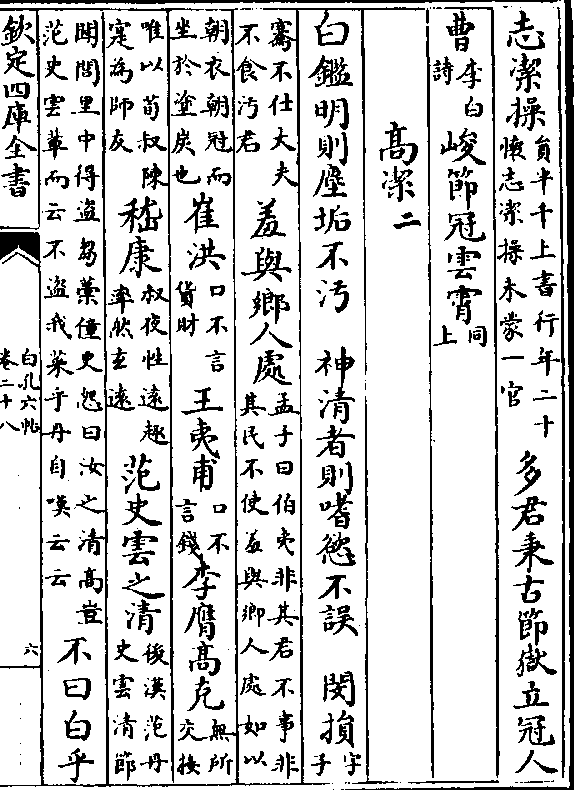 志潔操員半千上書行年二十懷志潔操未蒙一官　多君秉古節嶽立冠人
曹李白詩　峻節冠雲霄同上
髙潔二
白鑑明則塵垢不汚　神清者則嗜慾不誤　閔損字子
騫不仕大夫不食汚君　羞與鄉人處孟子曰伯夷非其君不事非其民不使羞與鄉人處如以
朝衣朝冠而坐於塗炭也　崔洪口不言貨財　王夷甫口不言錢　李膺髙亢無所交接
唯以荀叔陳寔為師友　嵇康叔夜性遠趣率然𤣥逺　范史雲之清後漢范丹史雲清節
聞閭里中得盜芻藁僮史怨曰汝之清髙豈范史雲輩而云不盜我菜乎丹自嘆云云　不曰白乎
欽定四庫全書
白孔六帖
卷二十八
六